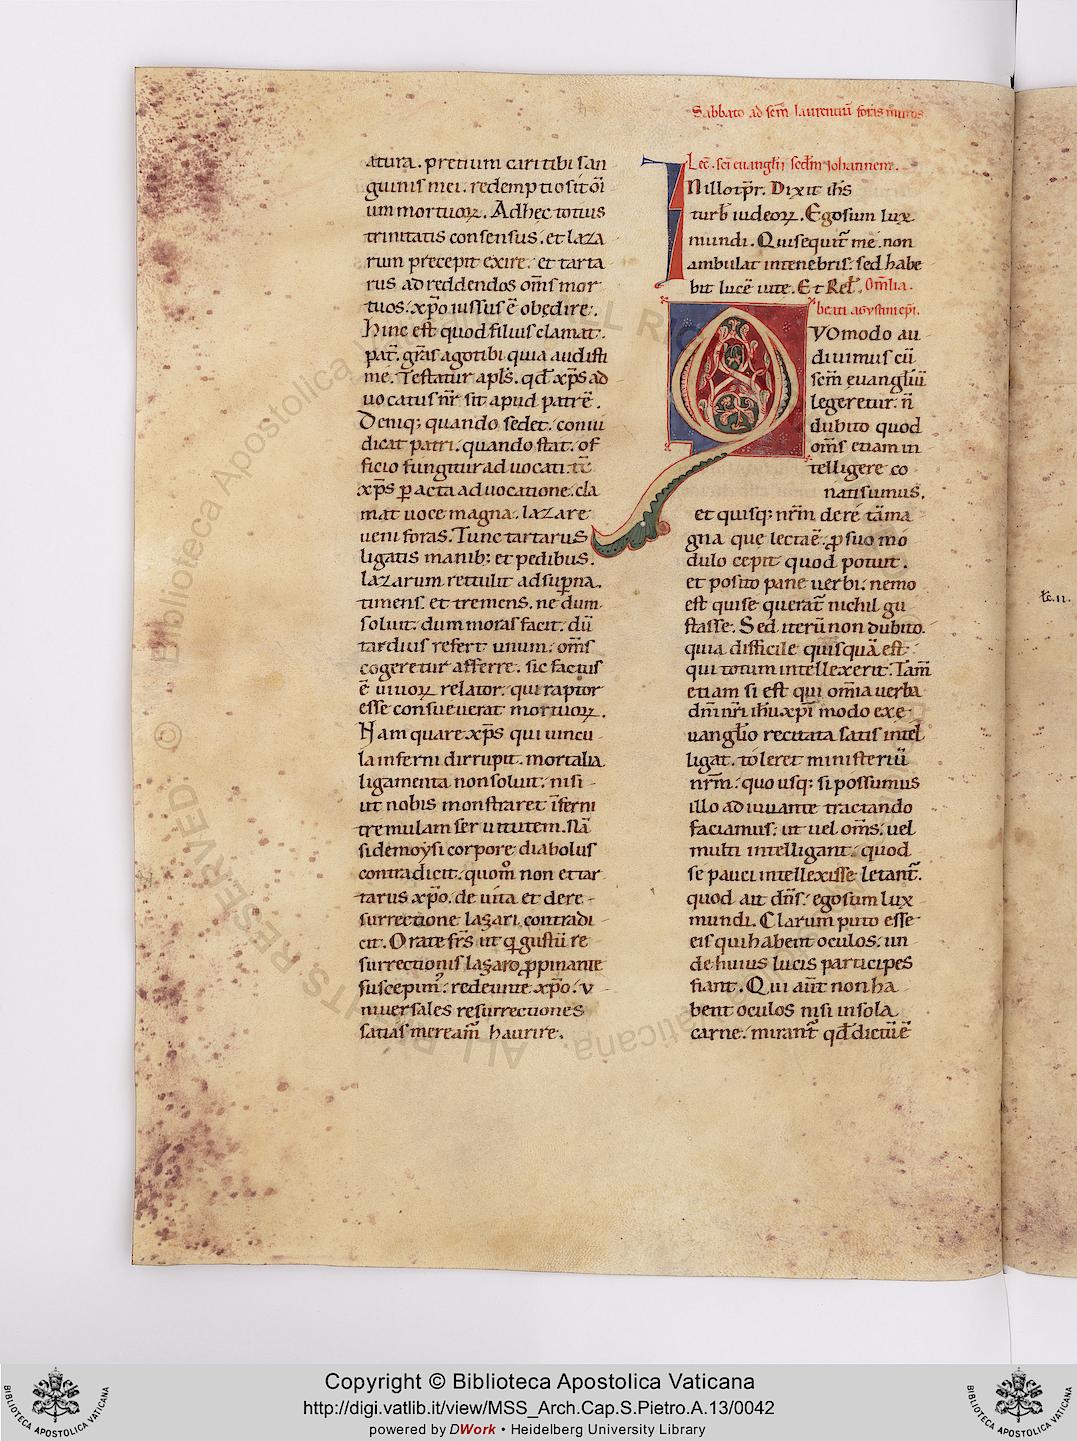 atura. pretium caritibi san
guinis mei. redemptio sit oı̄
um mortuoꝝ. Adhęc totius
trinitatis consensus. et laza
rum precepit exire. et tarta
rus ad reddendos om̄s mor
tuos. xp̄o iussus ē obedire.
Hinc est quod filius clamat.
pat̄. gr̄as ago tibi quia audisti
me. Testatur apl̄s. qd̄ xp̄s ad
uocatus nr̄ sit apud patrē.
Deniq; quando sedet. coniu
dicat patri. quando stat. of
ficio fungitur aduocati. tē
xp̄s ꝑacta aduocatione. cla
mat uoce magna. lazare
ueni foras. Tunc tartarus
ligatis manib; et pedibus.
lazarum rettulit adsupna.
timens. et tremens. ne dum
soluit. dum moras facit. dū
tardius refert unum. om̄s
cogeretur afferre. sic factus
ē uiuoꝝ relator. qui raptor
esse consueuerat mortuoꝝ.
Nam quare xp̄s qui uincu
la inferni dirrupit. mortalia
ligamenta non soluit. nisi
ut nobis monstraret īferni
tremulam seruitutem. Nā
si de moysi corpore diabolus
contradicit. quom̊ non et tar
tarus xp̄o. de uita et de re
surrectione lazari contradi
cit. Orate fr̄s ut q gustū re
surrectionis lazaro ꝓpinante
suscepim; redeunte xp̄o. v
niuersales resurrectiones
satias meream̄ haurire.
Sabbato ad sc̄m laurentiū foras muros
Lec̄. sc̄i euanglii scdm̄ iohannem.
IN illo tp̄r. Dixit ih̄s
turb̄ iudeoꝝ. Ego sum lux
mundi. Qui sequit̄ me. non
ambulat in tenebris. sed habe
bit lucē uite. Et Rel̄. Om̄lia.
beati agustini ep̄i.
QVOmodo au
diuimus cū
sc̄m euangliū
legeretur. n̄
dubito quod
om̄s etiam in
telligere co
nati sumus.
et quisq; nr̄m de re tāma
gna que lecta ē. ꝓ suo mo
dulo cepit quod potuit.
et posito pane uerbi. nemo
est qui se querat̄ nichil gu
stasse. Sed iterū non dubito.
quia difficile quisquā est
qui totum intellexerit. Tam̄
etiam si est qui om̄ia uerba
dn̄i nr̄i ih̄u xp̄i modo ex e
uanglio recitata satis intel
ligat. toleret ministeriū
nr̄m. quo usq; si possumus
illo adiuuante tractando
faciamus. ut uel om̄s. uel
multi intelligant. quod
se pauci intellexisse letant̄.
quod ait dn̄s. ego sum lux
mundi. Clarum puto esse
eis qui habent oculos. un
de huius lucis participes
fiant. Qui aūt non ha
bent oculos nisi in sola
carne. mirant̄ qd̄ dictū ē
© Biblioteca Apostolica Vaticana. ALL RIGHTS RESERVED
Copyright © Biblioteca Apostolica Vaticana
http://digi.vatlib.it/view/MSS_Arch.Cap.S.Pietro.A.13/0042
powered by DWork • Heidelberg University Library
BIBLIOTECA APOSTOLICA VATICANA
BIBLIOTECA APOSTOLICA VATICANA